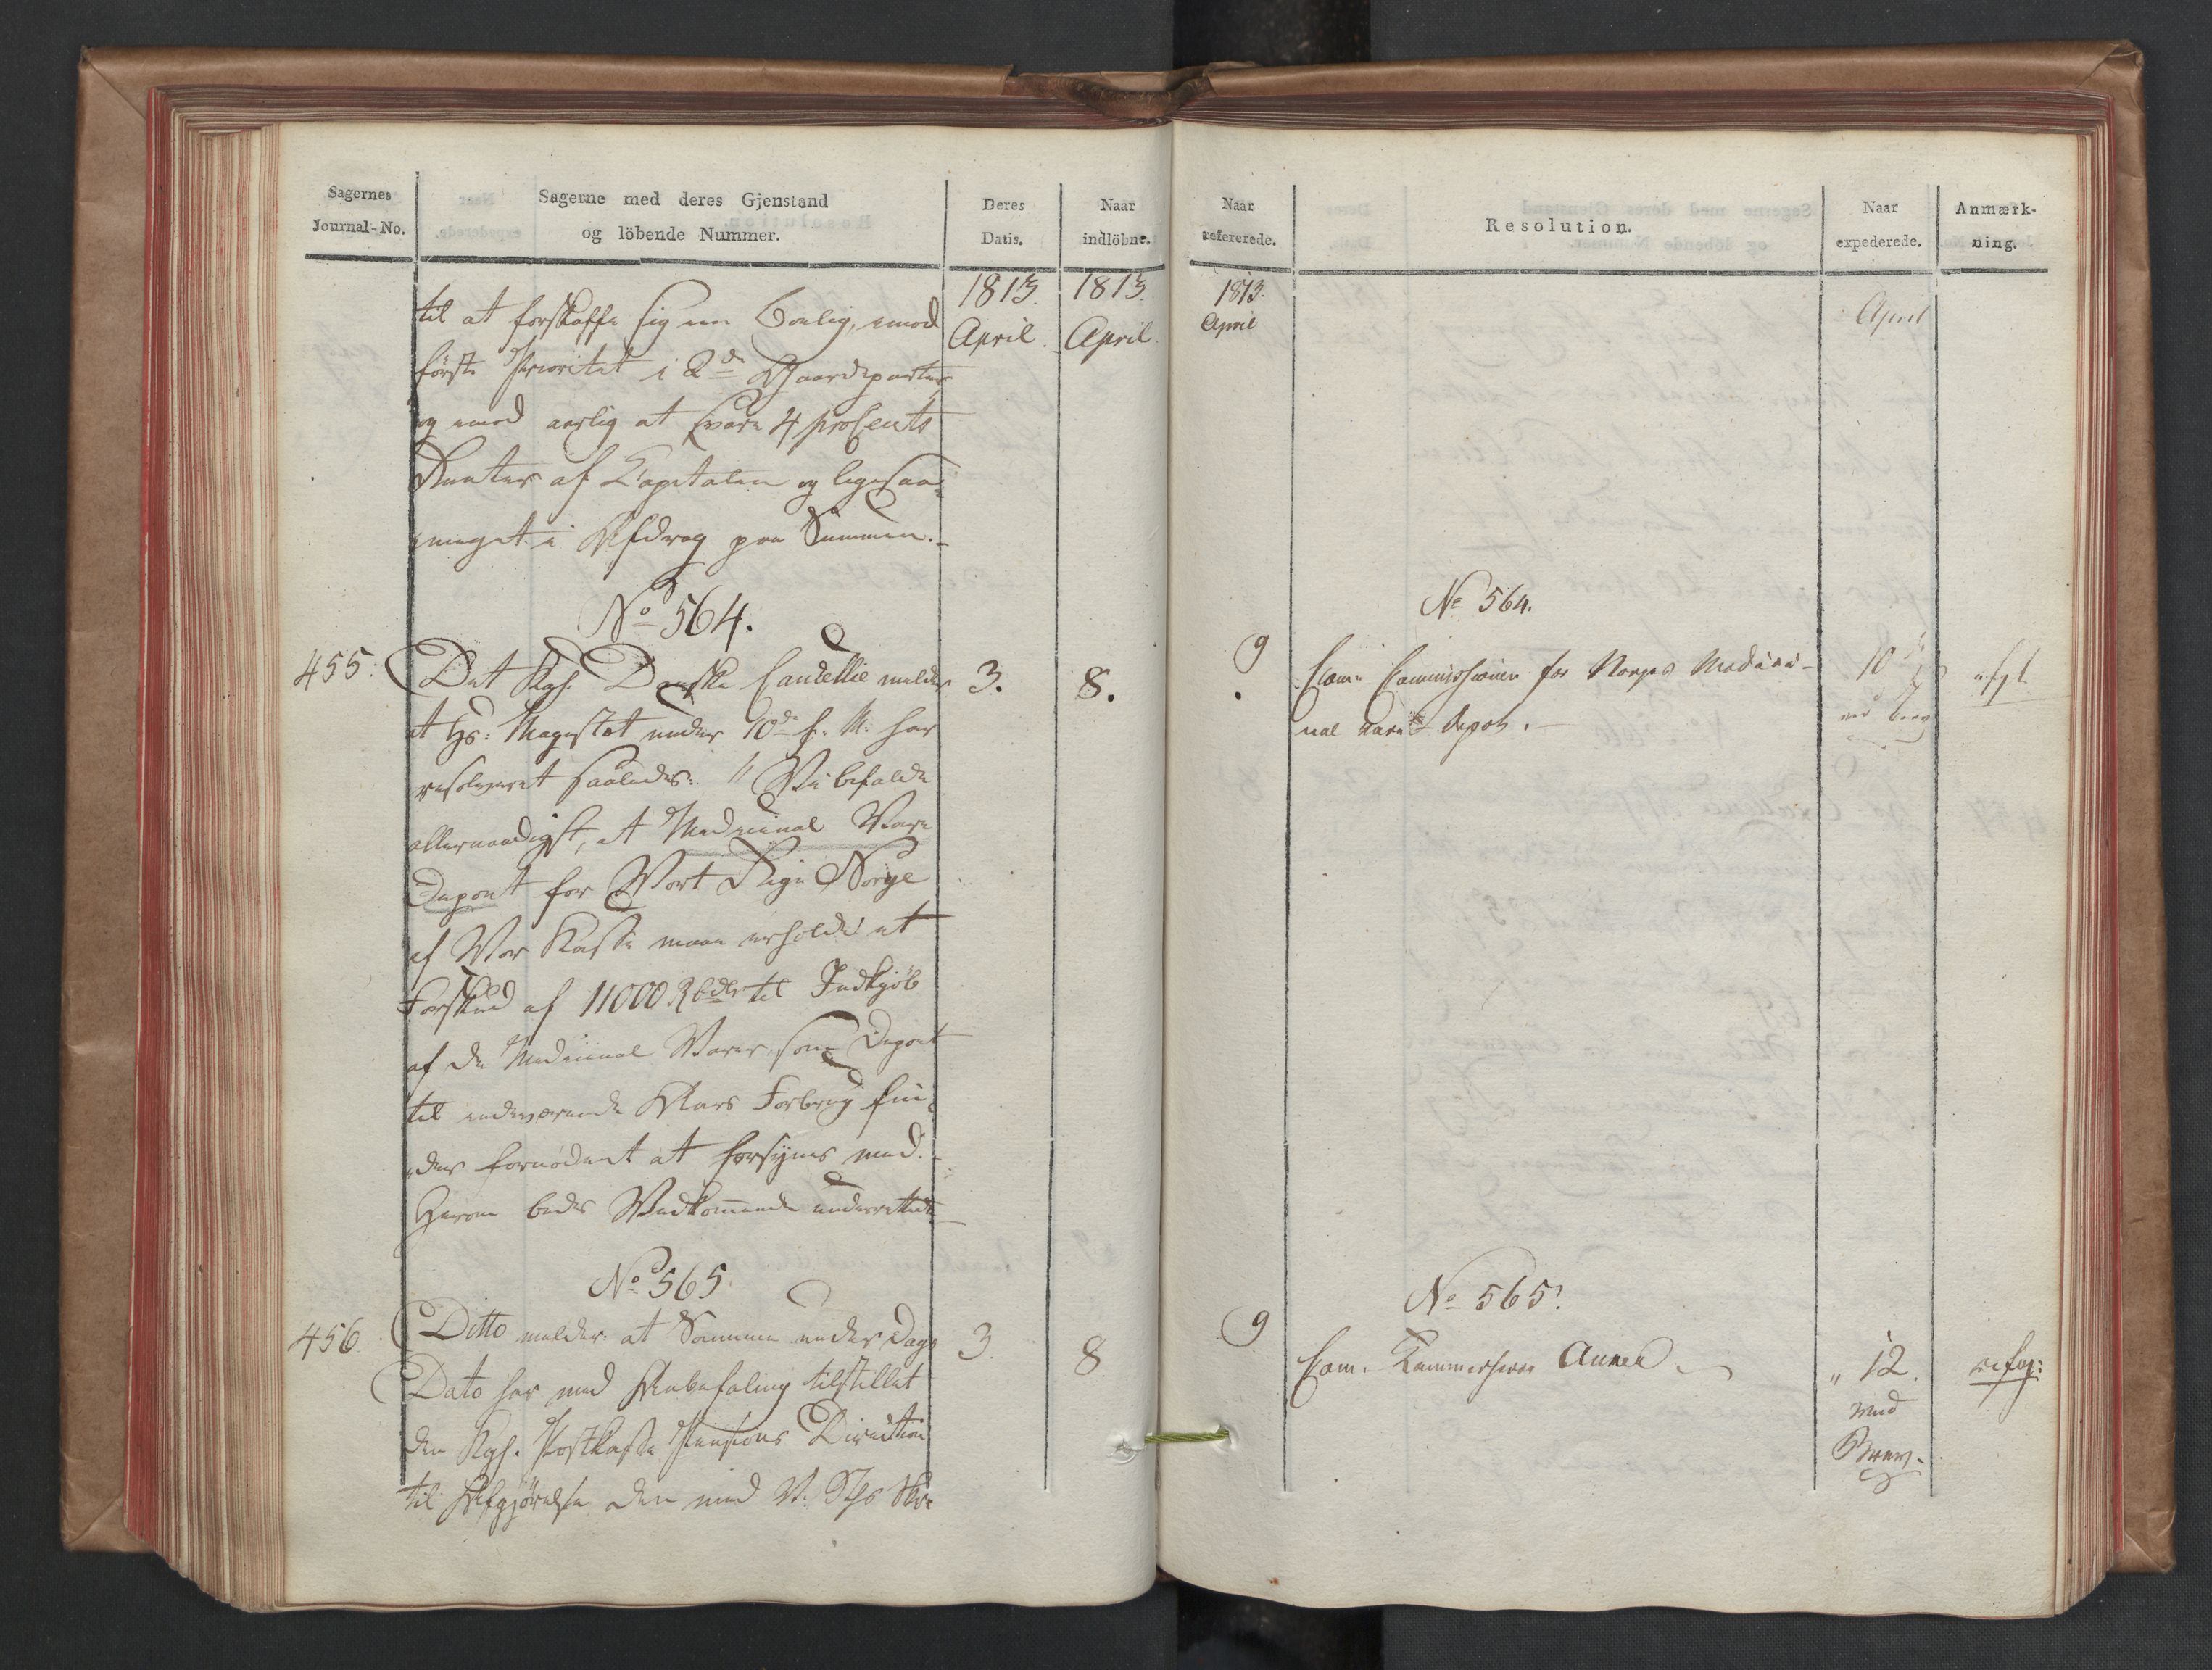 Sagernes
Journal-No.
Sagerne med deres Gjenstand
og löbende Nummer.
Deres
Datis.
Naar
indlöbne.
1813.
April.
1813.
April.
til at forskaffe sig en Bolig, imod
første Prioritet i Gaardeparter
og imod aarlig at svare 4 proCents
Renter af Capitalen og ligesaa-
meget i Afdrag paa Summen.
No 564.
455.
Det Kgl. Danske Cancellie melder
3.
8.
at Hs: Majestæt under 10de f. M. har
resolveret saaledes: "Vi befale
allernaadigst, at Medicinal Vare
Depotet for Vort Rige Norge
af Vor Kasse maae erholde et
Forskud af 11000 Rbdlr til Indkjöb
af de Medicinal Varer, som Depotet
til indeværende Aars Forbrug fin-
des fornödent at forsynes med.
Herom bedes Vedkommende underrettede
No 565.
456.
Ditto melder at Samme under Dags
3.
8
Dato har med Anbefaling tilstillet
den Kgl. Postkasse Pensions Direction
til Afgjørelse den med
Naar
refererede.
Resolution.
Naar
expederede.
Anmærk-
ning.
1813.
April
April
No 564.
9
Com: Commissionen for Norges Medici-
nal Vare-depot.
10
med Brev
No 565.
9
Com. Kammerherre Anker.
" 12.
med
Brev.